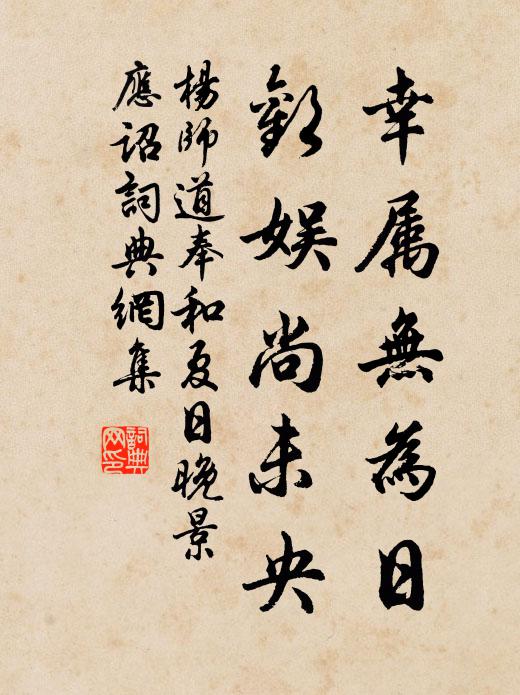 幸属無為日
歡娱尚未央
楊師道奉和夏日晚景
應詔詞典網集
詞典网印